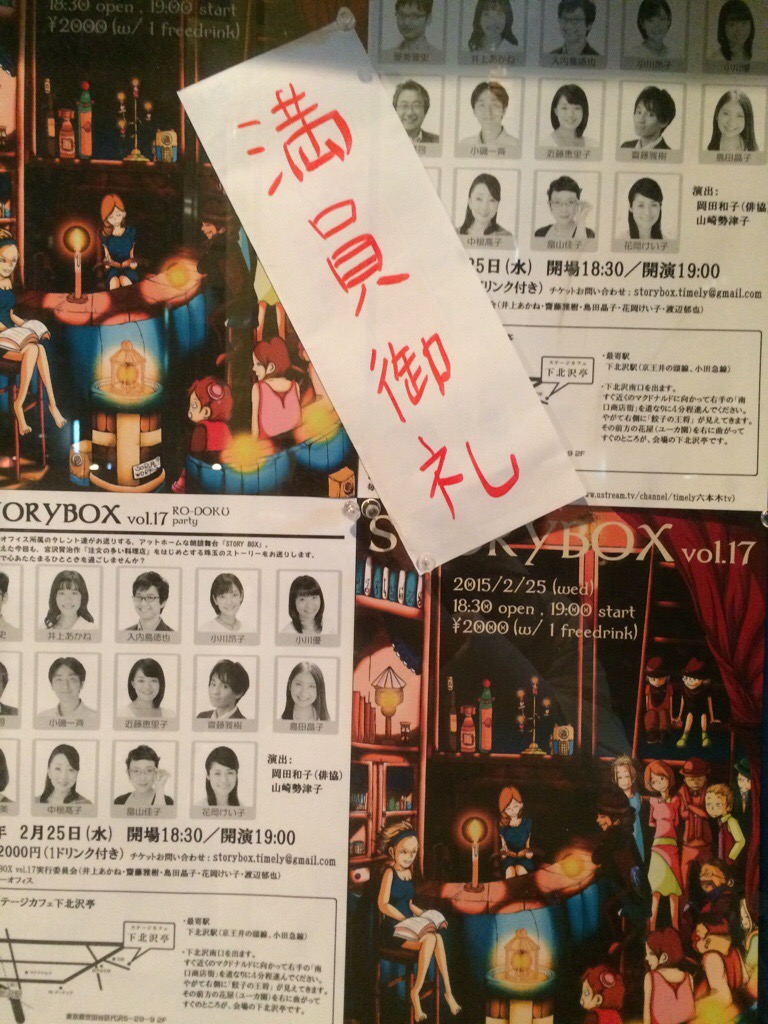 18:30 open , 19:00 start
¥2000 (w/ 1 freedrink)
井上あかね
入内島徳也
小川昂子
小川優
小磯一斉
近藤恵里子
齋藤雅樹
島田晶子
中根高子
畠山佳子
花岡けい子
演出:
岡田和子(俳協)
山崎勢津子
25日(水) 開場18:30/開演19:00
ドリンク付き) チケットお問い合わせ:storybox.timely@gmail.com
会(井上あかね・齋藤雅樹・島田晶子・花岡けい子・渡辺郁也)
ステージカフェ
下北沢亭
・最寄駅
下北沢駅(京王井の頭線、小田急線)
・下北沢南口を出ます。
すぐ近くのマクドナルドに向かって右手の「南
口商店街」を道なりに4分程進んでください。
やがて右側に「餃子の王将」が見えてきます。
その前方の花屋(ユー力園)を右に曲がって
すぐのところが、会場の下北沢亭です。
9 2F
www.ustream.tv/channel/timely六本木tv)
満員御礼
STORYBOX vol.17 RO-DOKU
party
オフィス所属のタレント達がお送りする、アットホームな朗読舞台「STORY BOX」。
えた今回も、宮沢賢治作「注文の多い料理店」をはじめとする珠玉のストーリーをお送りします。
で心あたたまるひとときを過ごしませんか?
井上あかね
入内島徳也
小川昂子
小川優
小磯一斉
近藤恵里子
齋藤雅樹
島田晶子
中根高子
畠山佳子
花岡けい子
演出:
岡田和子(俳協)
山崎勢津子
年 2月25日(水) 開場18:30/開演19:00
2000円(1ドリンク付き) チケットお問い合わせ:storybox.timely@gmail.com
BOX vol.17実行委員会(井上あかね・齋藤雅樹・島田晶子・花岡けい子・渡辺郁也)
ーオフィス
テージカフェ下北沢亭
ステージカフェ
下北沢亭
・最寄駅
下北沢駅(京王井の頭線、小田急線)
・下北沢南口を出ます。
すぐ近くのマクドナルドに向かって右手の「南
口商店街」を道なりに4分程進んでください。
やがて右側に「餃子の王将」が見えてきます。
その前方の花屋(ユー力園)を右に曲がって
すぐのところが、会場の下北沢亭です。
東京都世田谷区代沢5-29-9 2F
STORYBOX vol.17
2015/2/25 (wed)
18:30 open , 19:00 start
¥2000 (w/ 1 freedrink)